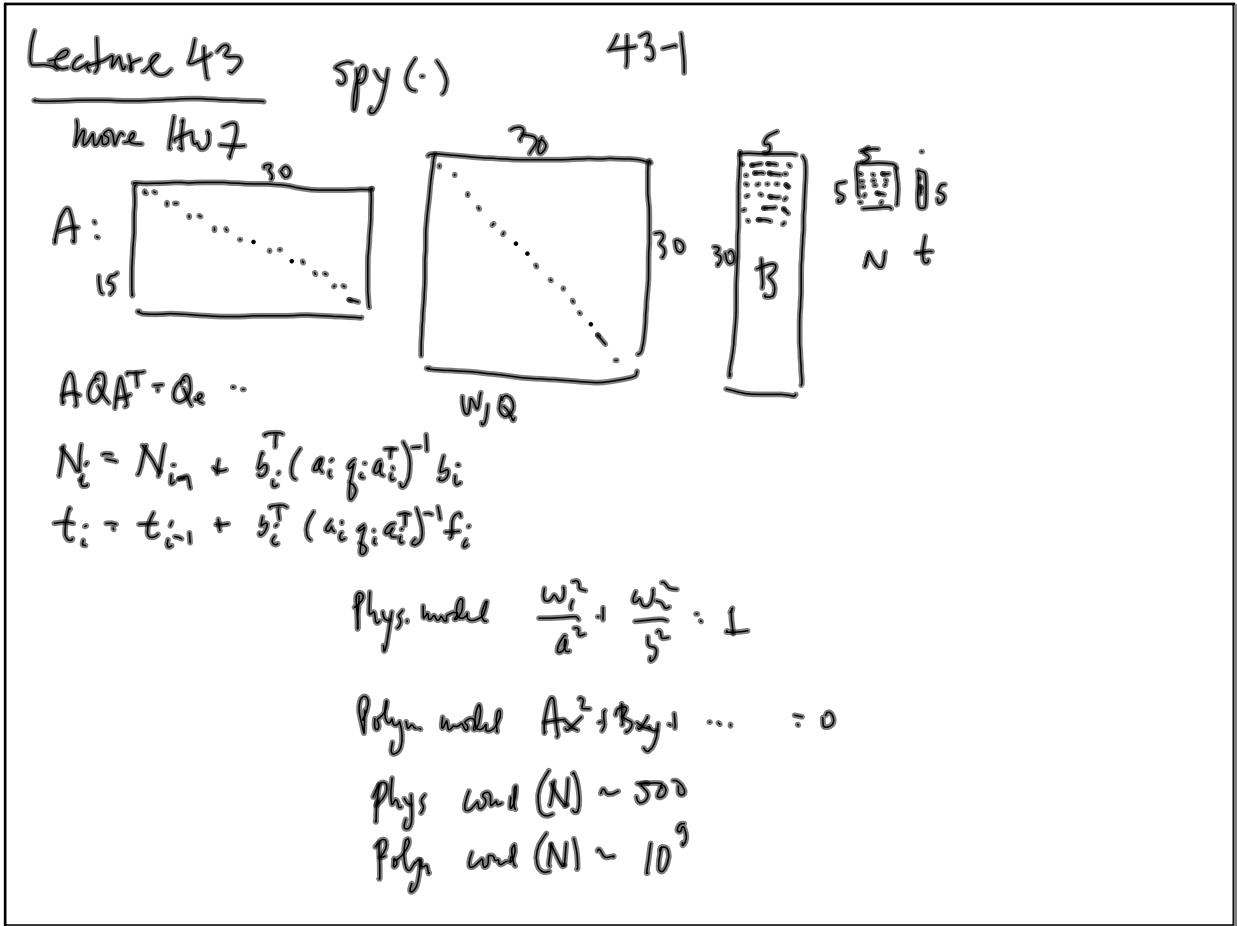 Lecture 43
43-1
spy (·)
more HW7
A:
30
15
30
30
W, Q
5
30
B
5
5
N
5
t
AQAᵀ = Qₑ ..
Nᵢ = Nᵢ₋₁ + bᵢᵀ (aᵢ qᵢ aᵢᵀ)⁻¹ bᵢ
tᵢ = tᵢ₋₁ + bᵢᵀ (aᵢ qᵢ aᵢᵀ)⁻¹ fᵢ
Phys. model w₁²/a² + w₂²/b² = 1
Polyn model Ax² + Bxy + ... = 0
Phys cond (N) ~ 500
Polyn cond (N) ~ 10⁹